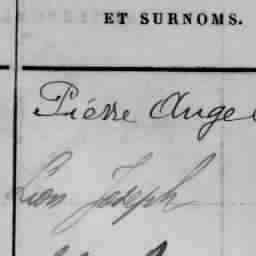 ET SURNOMS.
Piérre Ange
Léon Joseph